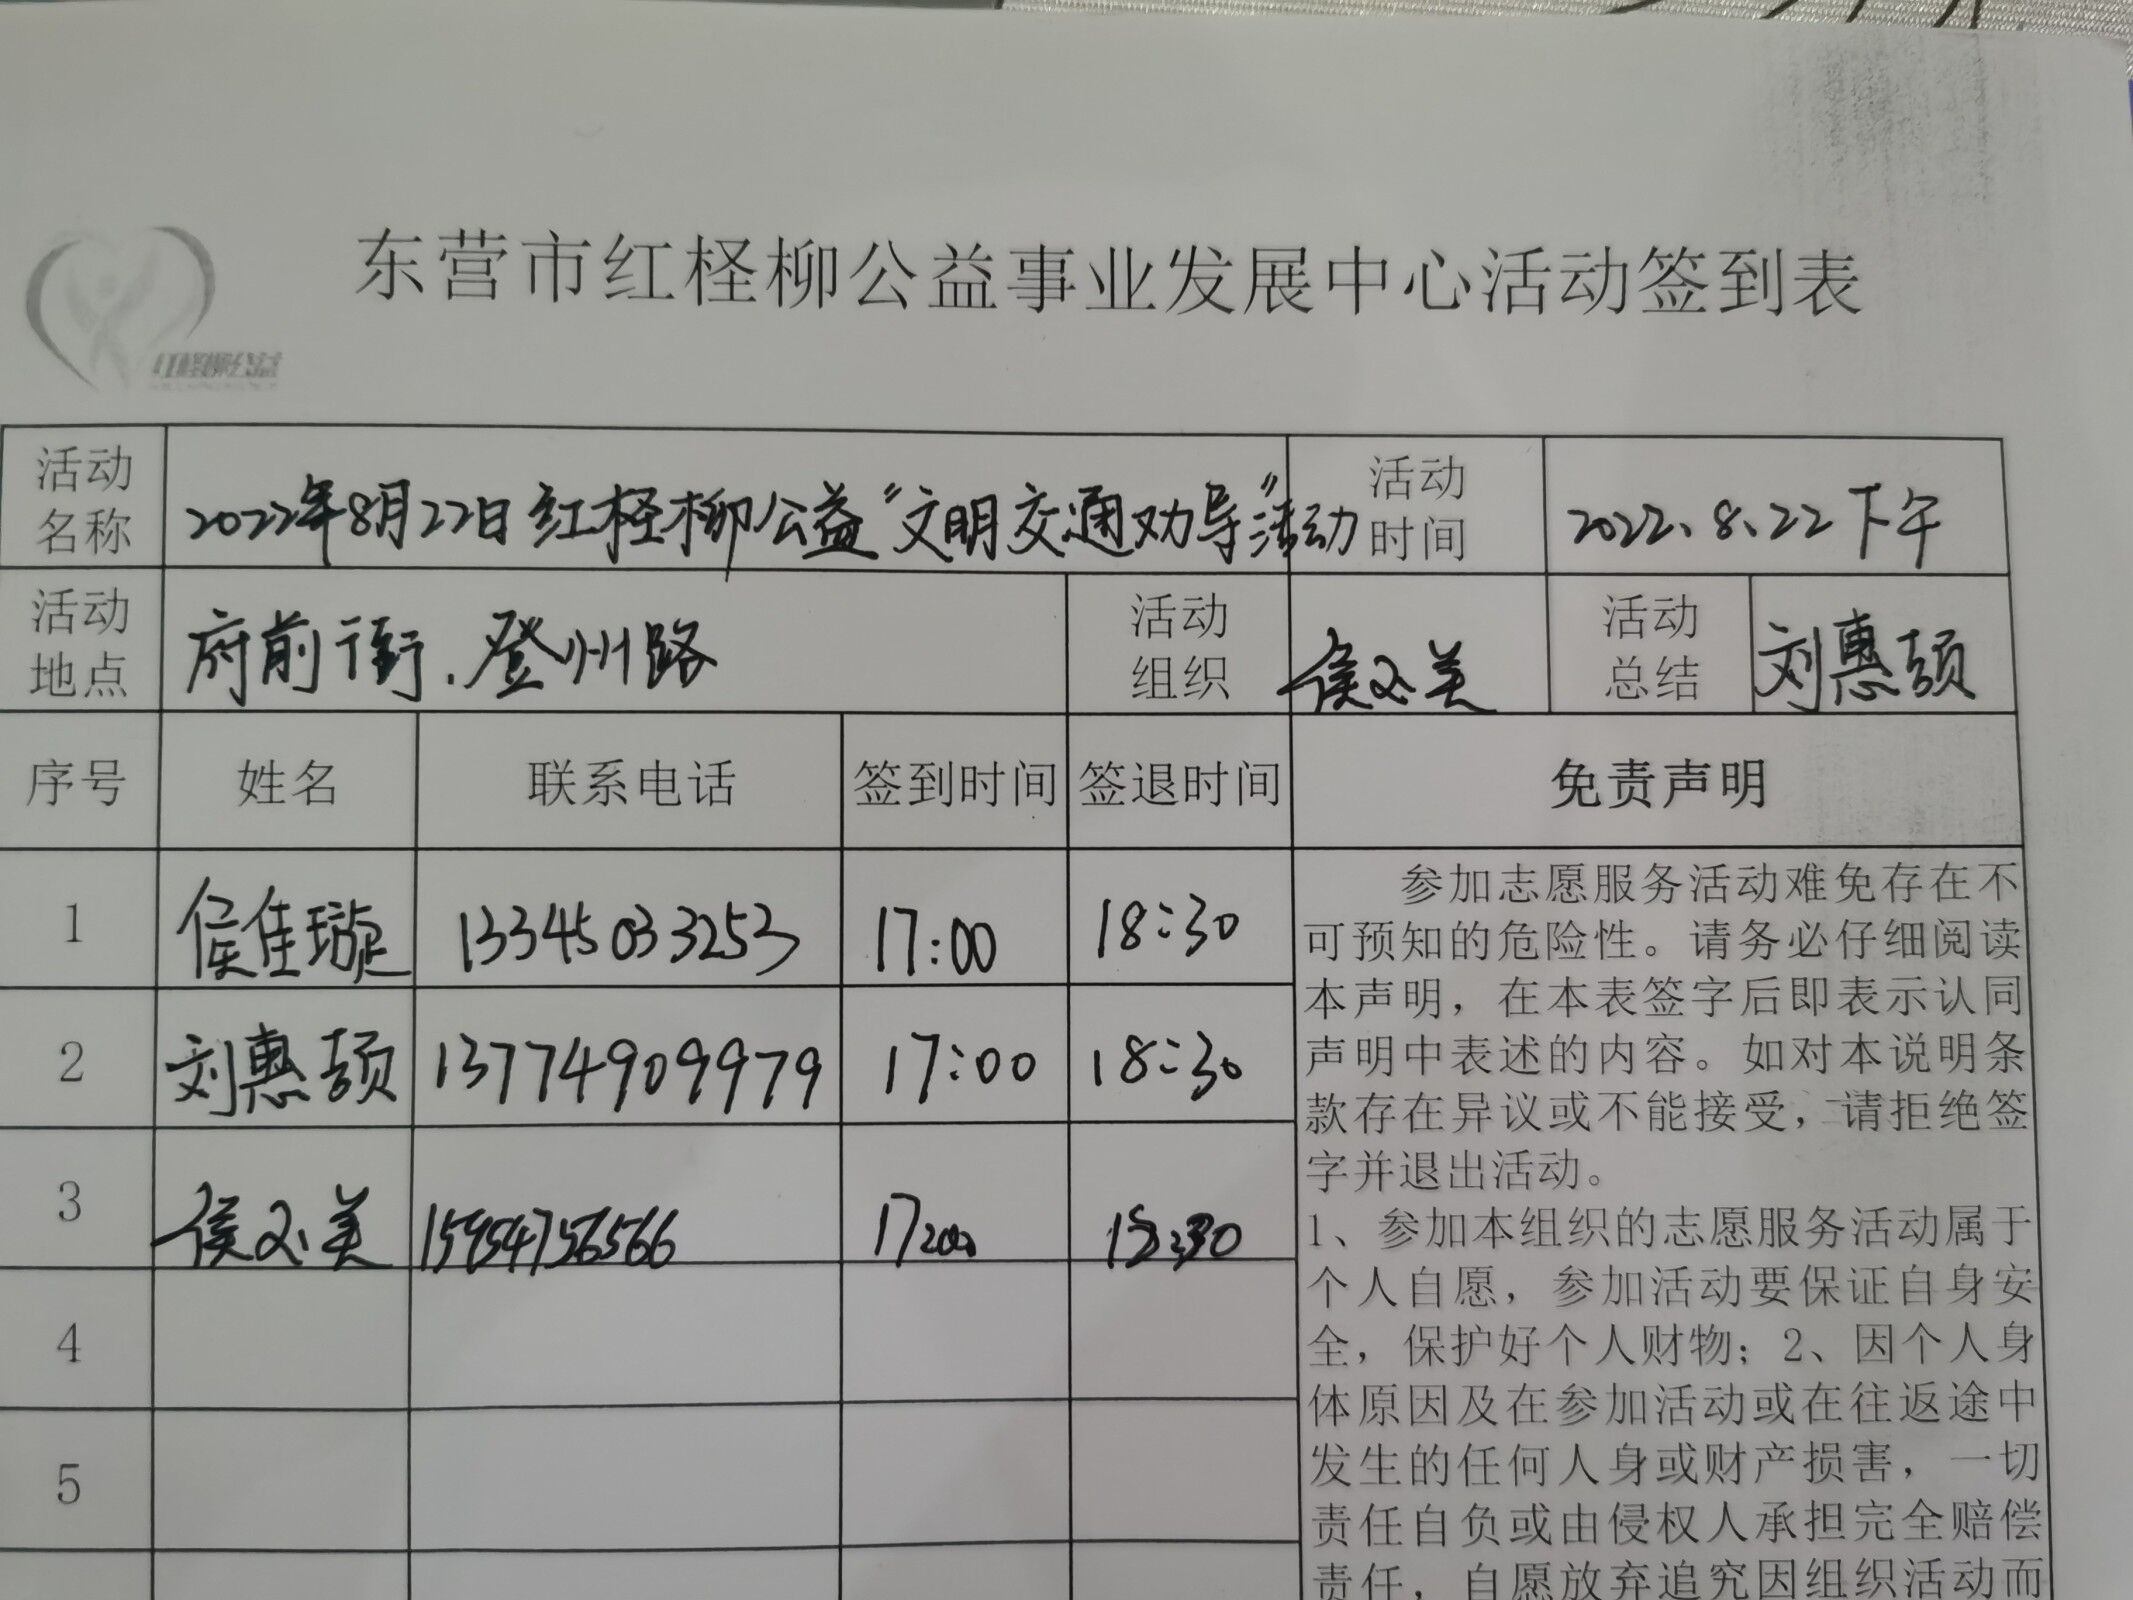 东营市红柽柳公益事业发展中心活动签到表
红柽柳公益
活动名称 2022年8月22日红柽柳公益“文明交通劝导”活动 活动时间 2022.8.22下午
活动地点 府前街.登州路 活动组织 侯 美 活动总结 刘惠颉
序号 姓名 联系电话 签到时间 签退时间 免责声明
1 侯佳璇 13345033253 17:00 18:30
2 刘惠颉 13774909979 17:00 18:30
3 侯 美 15954756566 17:00 18:30
4
5
参加志愿服务活动难免存在不
可预知的危险性。请务必仔细阅读
本声明，在本表签字后即表示认同
声明中表述的内容。如对本说明条
款存在异议或不能接受，请拒绝签
字并退出活动。
1、参加本组织的志愿服务活动属于
个人自愿，参加活动要保证自身安
全，保护好个人财物；2、因个人身
体原因及在参加活动或在往返途中
发生的任何人身或财产损害，一切
责任自负或由侵权人承担完全赔偿
责任，自愿放弃追究因组织活动而